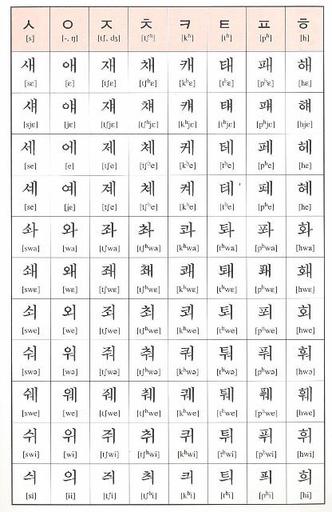 ㅅ ㅇ ㅈ ㅊ ㅋ ㅌ ㅍ ㅎ
[s] [-, ŋ] [tʃ, dʒ] [tʃʰ] [kʰ] [tʰ] [pʰ] [h]
새 애 재 채 캐 태 패 해
[sɛ] [ɛ] [tʃɛ] [tʃʰɛ] [kʰɛ] [tʰɛ] [pʰɛ] [hɛ]
섀 얘 쟤 챼 컈 턔 퍠 햬
[sjɛ] [jɛ] [tʃjɛ] [tʃʰjɛ] [kʰjɛ] [tʰjɛ] [pʰjɛ] [hjɛ]
세 에 제 체 케 테 페 헤
[se] [e] [tʃe] [tʃʰe] [kʰe] [tʰe] [pʰe] [he]
셰 예 졔 쳬 켸 톄 폐 혜
[se] [je] [tʃe] [tʃʰe] [kʰe] [tʰe] [pʰe] [he]
솨 와 좌 촤 콰 톼 퐈 화
[swa] [wa] [tʃwa] [tʃʰwa] [kʰwa] [tʰwa] [pʰwa] [hwa]
쇄 왜 좨 쵀 쾌 퇘 퐤 홰
[swɛ] [wɛ] [tʃwɛ] [tʃʰwɛ] [kʰwɛ] [tʰwɛ] [pʰwɛ] [hwɛ]
쇠 외 죄 최 쾨 퇴 푀 회
[swe] [we] [tʃwe] [tʃʰwe] [kʰwe] [tʰwe] [pʰwe] [hwe]
숴 워 줘 춰 쿼 퉈 풔 훠
[swə] [wə] [tʃwə] [tʃʰwə] [kʰwə] [tʰwə] [pʰwə] [hwə]
쉐 웨 줴 췌 퀘 퉤 풰 훼
[swe] [we] [tʃwe] [tʃʰwe] [kʰwe] [tʰwe] [pʰwe] [hwe]
쉬 위 쥐 취 퀴 튀 퓌 휘
[swi] [wi] [tʃwi] [tʃʰwi] [kʰwi] [tʰwi] [pʰwi] [hwi]
싀 의 즤 츼 킈 틔 픠 희
[si] [ii] [tʃi] [tʃʰi] [kʰi] [tʰi] [pʰi] [hi]